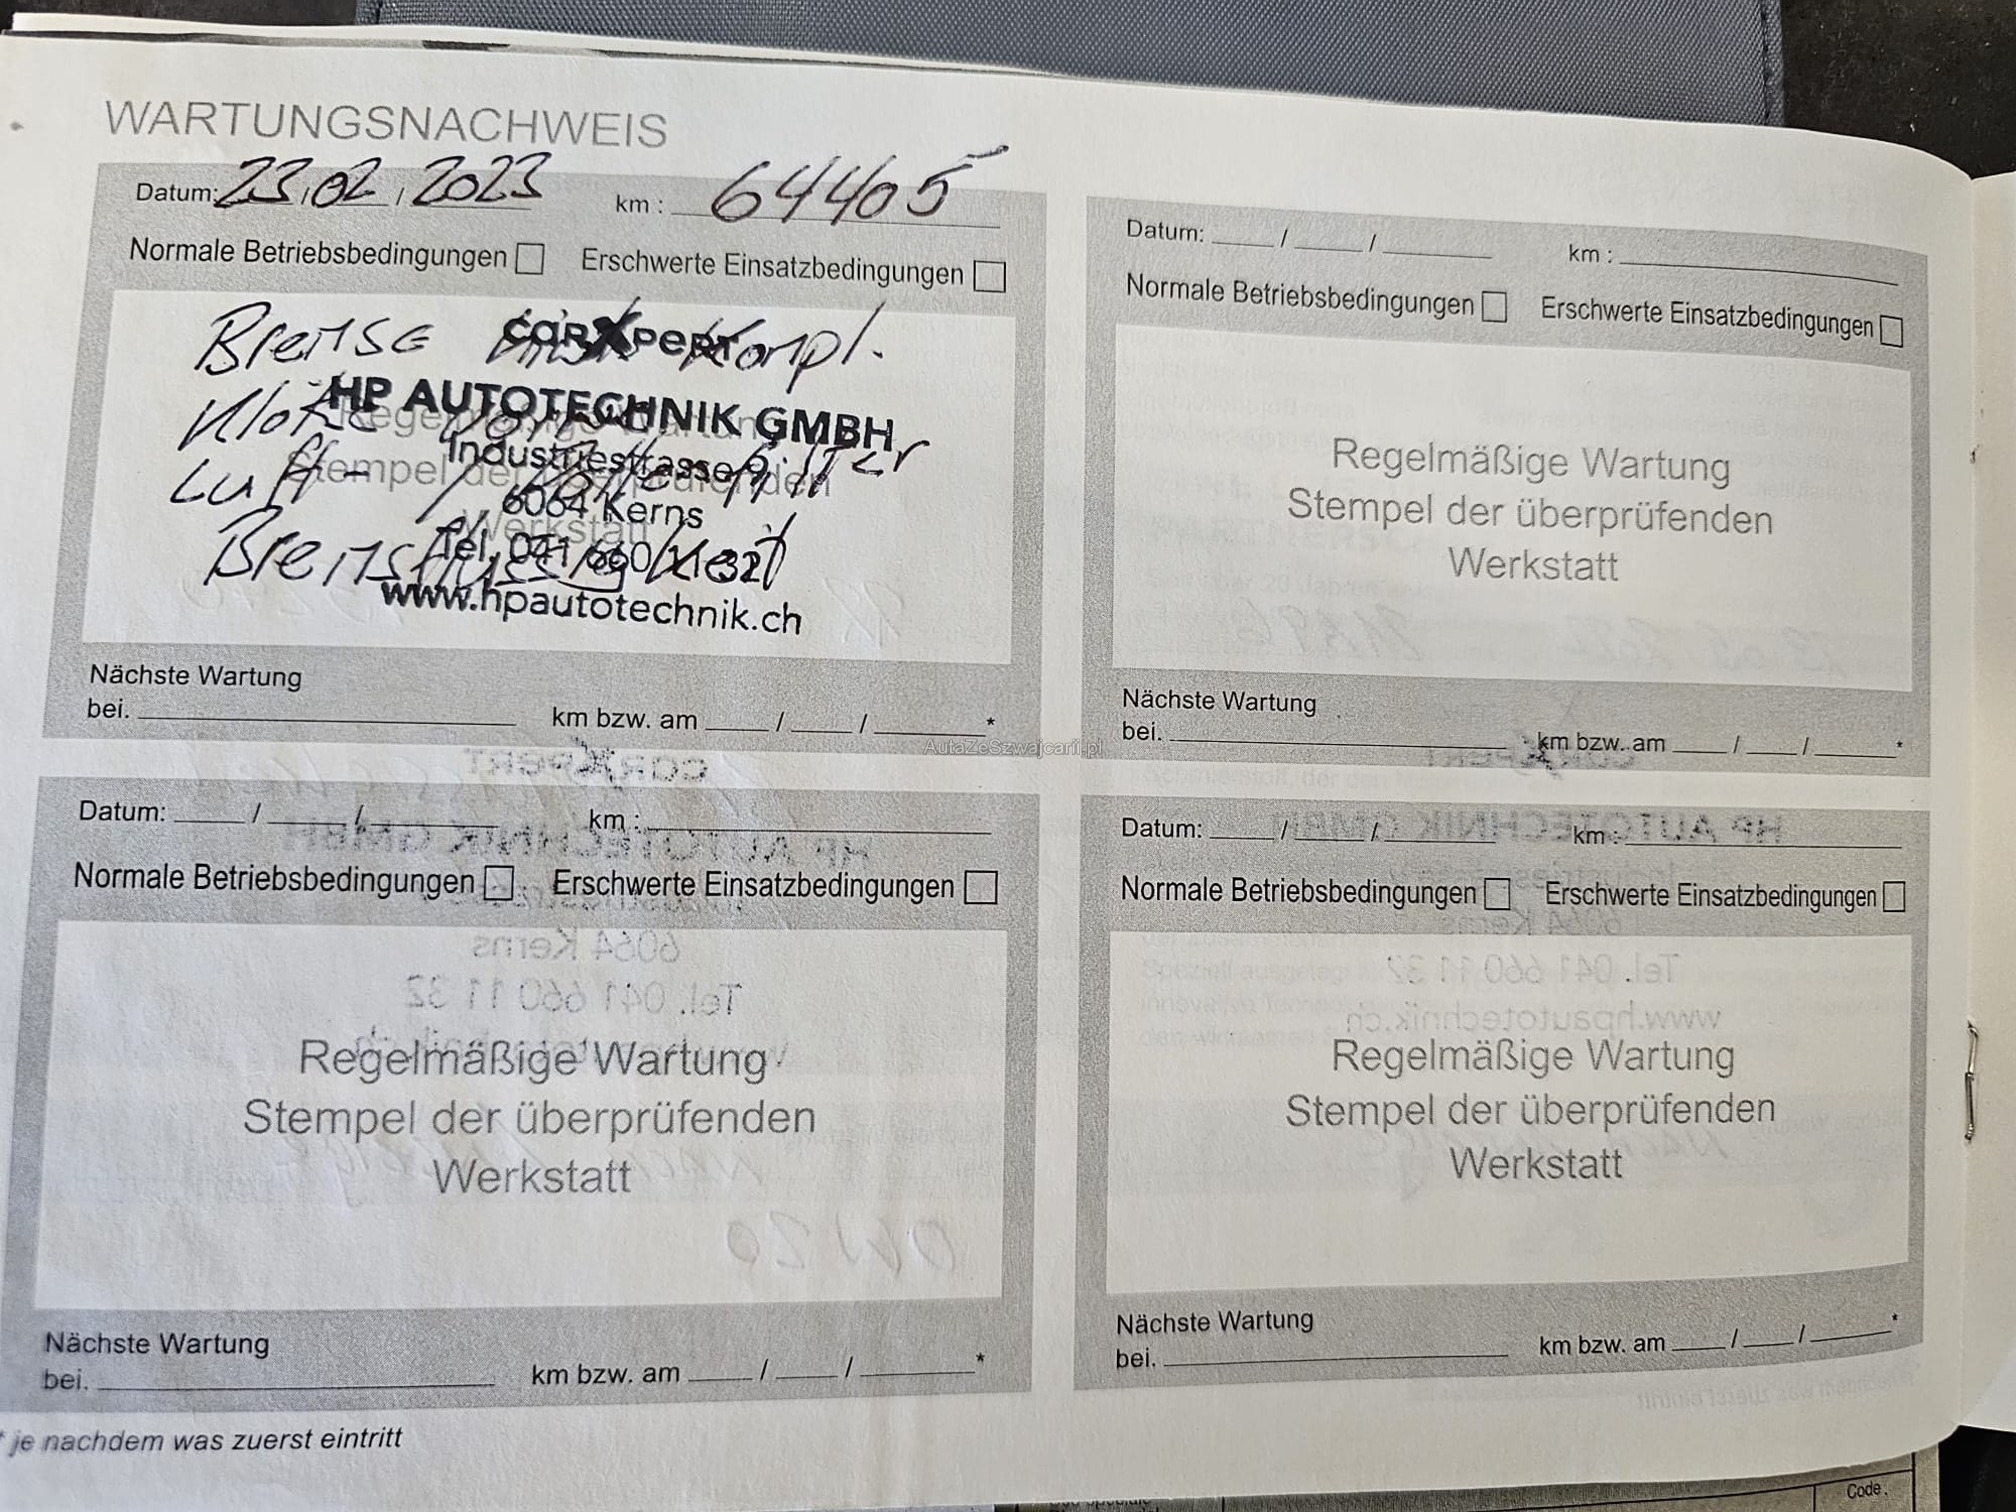 WARTUNGSNACHWEIS
Datum: 23/02/2023 km: 64405
Normale Betriebsbedingungen Erschwerte Einsatzbedingungen
Bremse kompl.
carXpert
HP AUTOTECHNIK GMBH
Klötze
Regelmäßige Wartung
Industriestrasse 9
Luft- / filter
Stempel der überprüfenden
6064 Kerns
Werkstatt
Bremsflüssigkeit
Tel. 041 660 11 32
www.hpautotechnik.ch
Nächste Wartung
bei. km bzw. am / / *
Datum: / / km :
Normale Betriebsbedingungen Erschwerte Einsatzbedingungen
Regelmäßige Wartung
Stempel der überprüfenden
Werkstatt
Nächste Wartung
bei. km bzw. am / / *
AutaZeSzwajcarii.pl
Datum: / / km :
Normale Betriebsbedingungen Erschwerte Einsatzbedingungen
Regelmäßige Wartung
Stempel der überprüfenden
Werkstatt
Nächste Wartung
bei. km bzw. am / / *
Datum: / / km :
Normale Betriebsbedingungen Erschwerte Einsatzbedingungen
Regelmäßige Wartung
Stempel der überprüfenden
Werkstatt
Nächste Wartung
bei. km bzw. am / / *
* je nachdem was zuerst eintritt
Code.